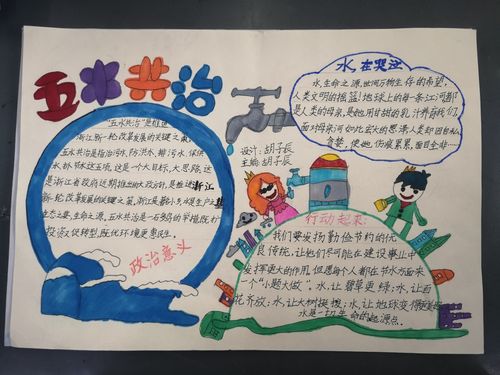 五水共治
"五水共治"是推进
浙江新一轮改革发展的关键之策。
五水共治是指治污水、防洪水、排污水、保供
水、抓节水这五项。这是一个大目标，大思路，这
是浙江省政府近期推出的大政方针，是推进浙江新
一轮改革发展的关键之策。浙江是著名水乡，水是生产之基
生态之要，生命之源。五水共治是一石多鸟的举措，既扩
投资又促转型，既优环境更惠民生。
政治意义
设计：胡子辰
主编：胡子辰
水在哭泣
水，生命之源，世间万物生存的希望，
人类文明的摇篮！地球上的每一条江河都
是人类的母亲，是她用甘甜的乳汁养育我们，
面对母亲河如此宏大的恩泽，人类却因自私
贪婪，使她，伤痕累累，面目全非……
行动起来：
我们要发扬勤俭节约的优
良传统，让他们尽可能在建设事业中
发挥更大的作用，但愿每个人都在节水方面来
一个"小题大做"。水，让碧草更绿；水，让百
花齐放；水，让大树挺拔；水，让地球变得更美丽
水是一切生命的起源点。